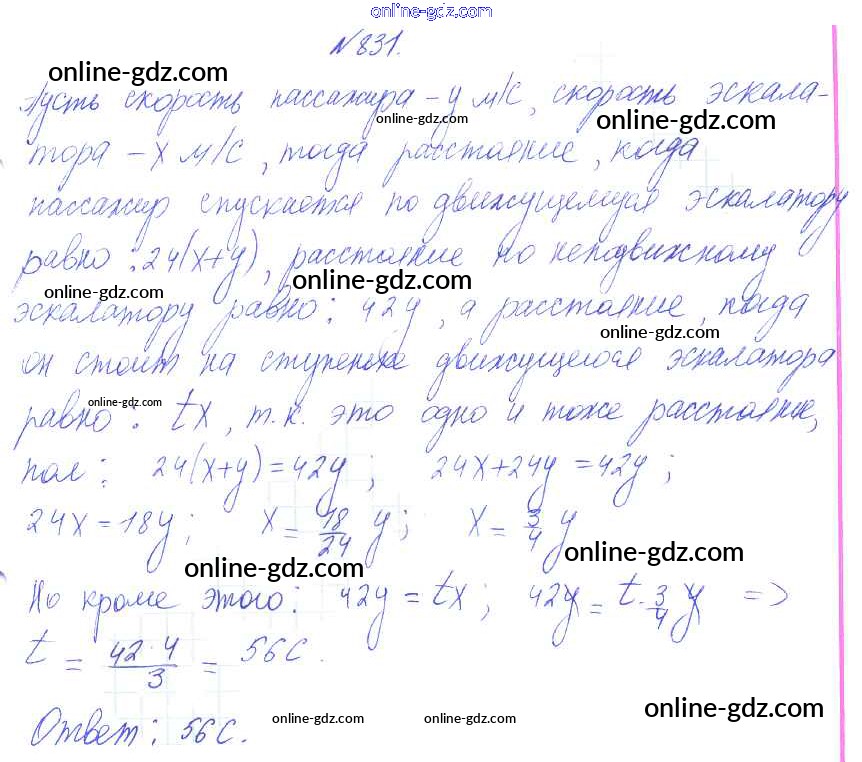 online-gdz.com
№831.
online-gdz.com
Пусть скорость пассажира – y м/с, скорость эскала-
online-gdz.com
online-gdz.com
тора – x м/с, тогда расстояние, когда
пассажир спускается по движущемуся эскалатору
равно: 24(x+y), расстояние по неподвижному
online-gdz.com
online-gdz.com
эскалатору равно: 42y, а расстояние, когда
online-gdz.com
он стоит на ступеньке движущегося эскалатора
online-gdz.com
равно: tx, т.к. это одно и тоже расстояние,
пол: 24(x+y)=42y; 24x+24y=42y;
24x=18y; x=18/24 y; x=3/4 y
online-gdz.com
online-gdz.com
Но кроме этого: 42y=tx; 42y=t·3/4 y =>
t = 42·4/3 = 56с.
online-gdz.com
online-gdz.com
online-gdz.com
Ответ: 56с.